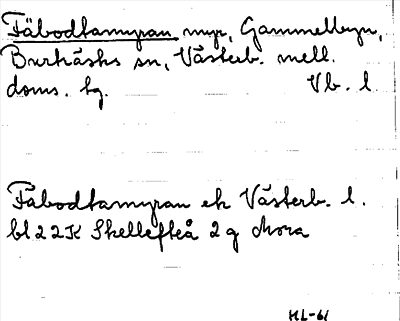 Fäbodtamyran myr, Gammelbyn,
Burträsks sn, Västerb. mell.
doms. hg. Vb. l.
Fäbodtamyran ek Västerb. l.
bl 22K Skellefteå 2g Mora
HL-61